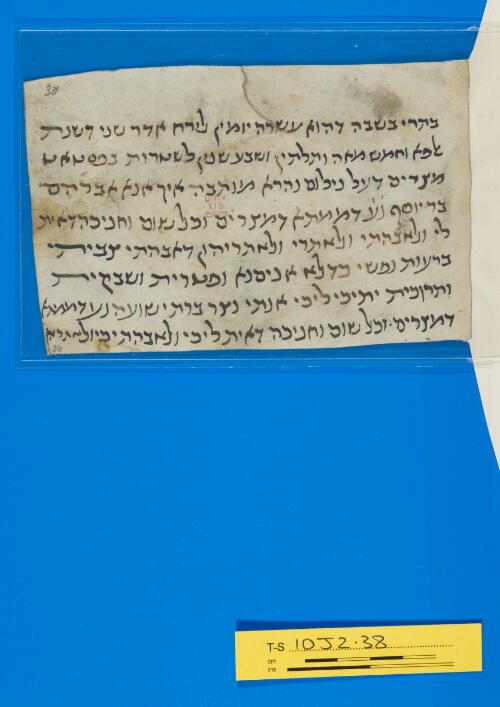 38
בתרי בשבה דהוא עשרה יומין לירח אדר שני דשנת
אלפא וחמש מאה ותלתין ושבע שנין לשטרות בפסטאט
מצרים דעל נילוס נהרא מותבה איך אנא אברהם
בר יוסף נע דממתא דמצרים וכל שום וחניכה דאית
לי ולאבהתי ולאתרי ולאתריהון דאבהתי צביתי
ברעות נפשי כדלא אניסנא ופטרית ושבקית
ותרוכית יתיכי ליכי אנתי נצר ברת ישועה נע דממתא
דמצרים וכל שום וחניכה דאית ליכי ולאבהתיכי ולאתריכי
38
T-S 10J2.38
cm
ins